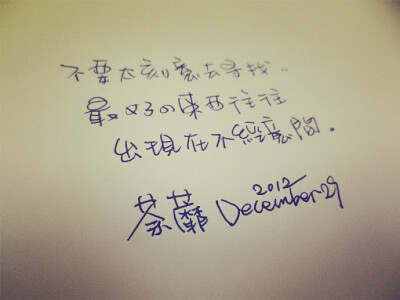 不要太刻意去尋找..
最好の東西往往
出現在不經意間。
荼蘼 2012
December 29